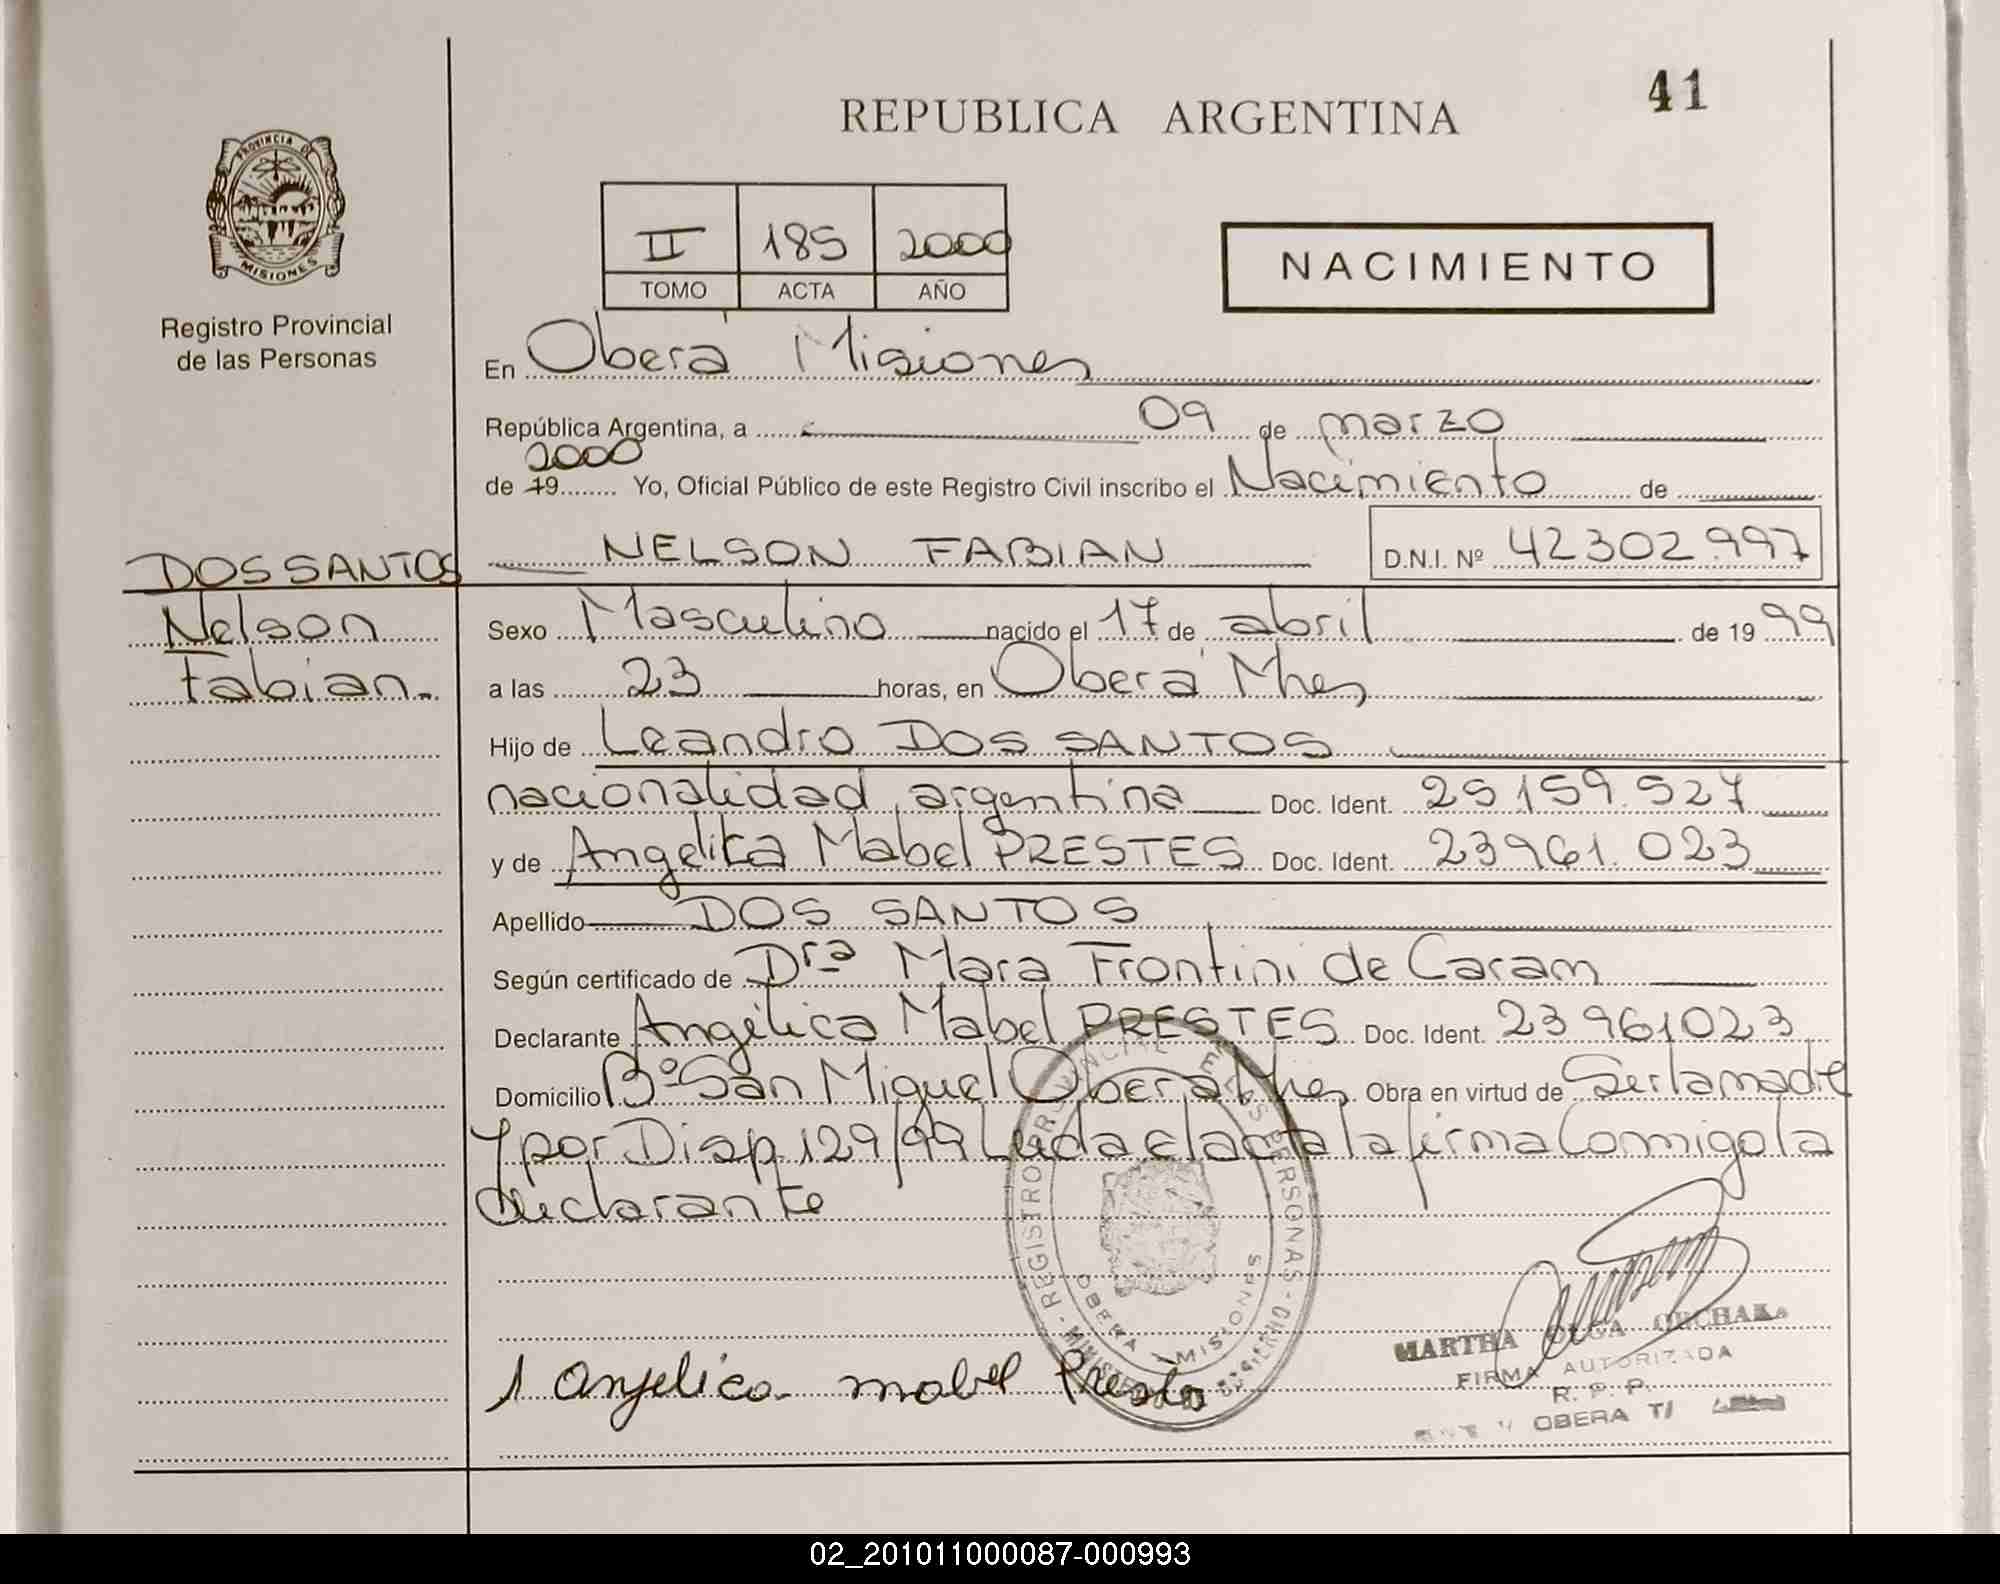 41
REPUBLICA ARGENTINA
PROVINCIA DE
MISIONES
Registro Provincial
de las Personas
II 185 2000
TOMO ACTA AÑO
NACIMIENTO
En Oberá Misiones
República Argentina, a 09 de marzo
2000
de 19 Yo, Oficial Público de este Registro Civil inscribo el Nacimiento de
NELSON FABIAN D.N.I. Nº 42302.997
DOS SANTOS
Nelson
Fabian
Sexo Masculino nacido el 17 de abril de 19 99
a las 23 horas, en Oberá Mnes
Hijo de Leandro DOS SANTOS
nacionalidad argentina Doc. Ident. 25 159.527
y de Angelica Mabel PRESTES Doc. Ident. 23961.023
Apellido DOS SANTOS
Según certificado de Drª Mara Frontini de Caram
Declarante Angélica Mabel PRESTES Doc. Ident. 23 961023
Domicilio Bº San Miguel Oberá Mnes Obra en virtud de Ser la madre
y por Disp. 129/99 Leida el acta la firma Conmigo la
declarante
REGISTRO PROVINCIAL DE LAS PERSONAS
OBERA MISIONES
Anjelica mabel Prestes
MARTHA OLGA
FIRMA AUTORIZADA
R. P. P.
OBERA
02_201011000087-000993